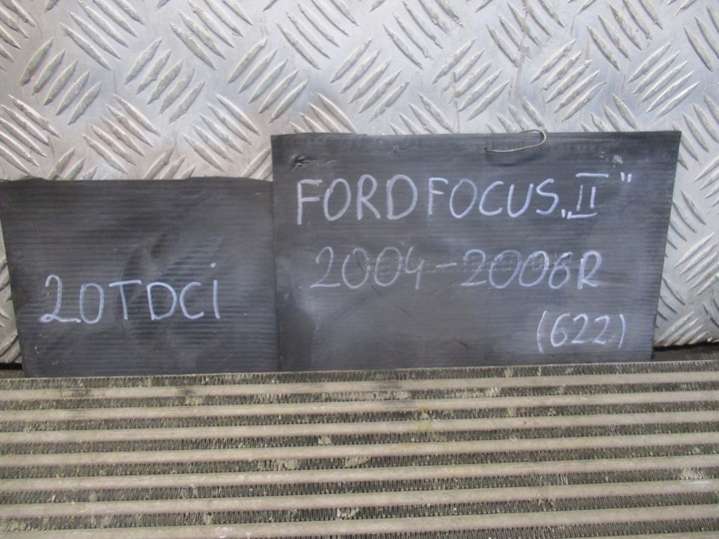 2.0 TDCi
FORD FOCUS „II"
2004-2006R
(622)